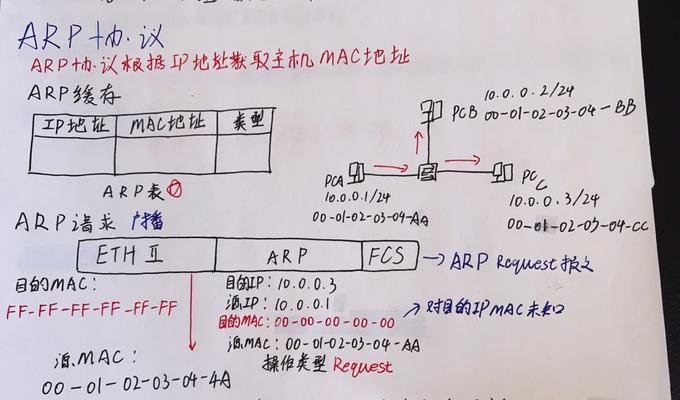 ARP协议
ARP协议根据IP地址获取主机MAC地址
ARP缓存
IP地址 MAC地址 类型
ARP表
10.0.0.2/24
PCB 00-01-02-03-04-BB
PCA
10.0.0.1/24
00-01-02-03-04-AA
PC C
10.0.0.3/24
00-01-02-03-04-CC
ARP请求 广播
ETH II ARP FCS → ARP Request报文
目的MAC:
FF-FF-FF-FF-FF-FF
源MAC:
00-01-02-03-04-4A
目的IP: 10.0.0.3
源IP: 10.0.0.1
目的MAC: 00-00-00-00-00 → 对目的IP MAC未知
源MAC: 00-01-02-03-04-AA
操作类型 Request